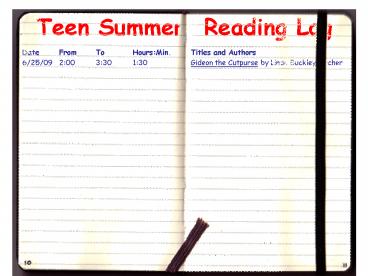 Teen Summer Reading Log
Date From To Hours:Min. Titles and Authors
6/25/09 2:00 3:30 1:30 Gideon the Cutpurse by Buckley
10